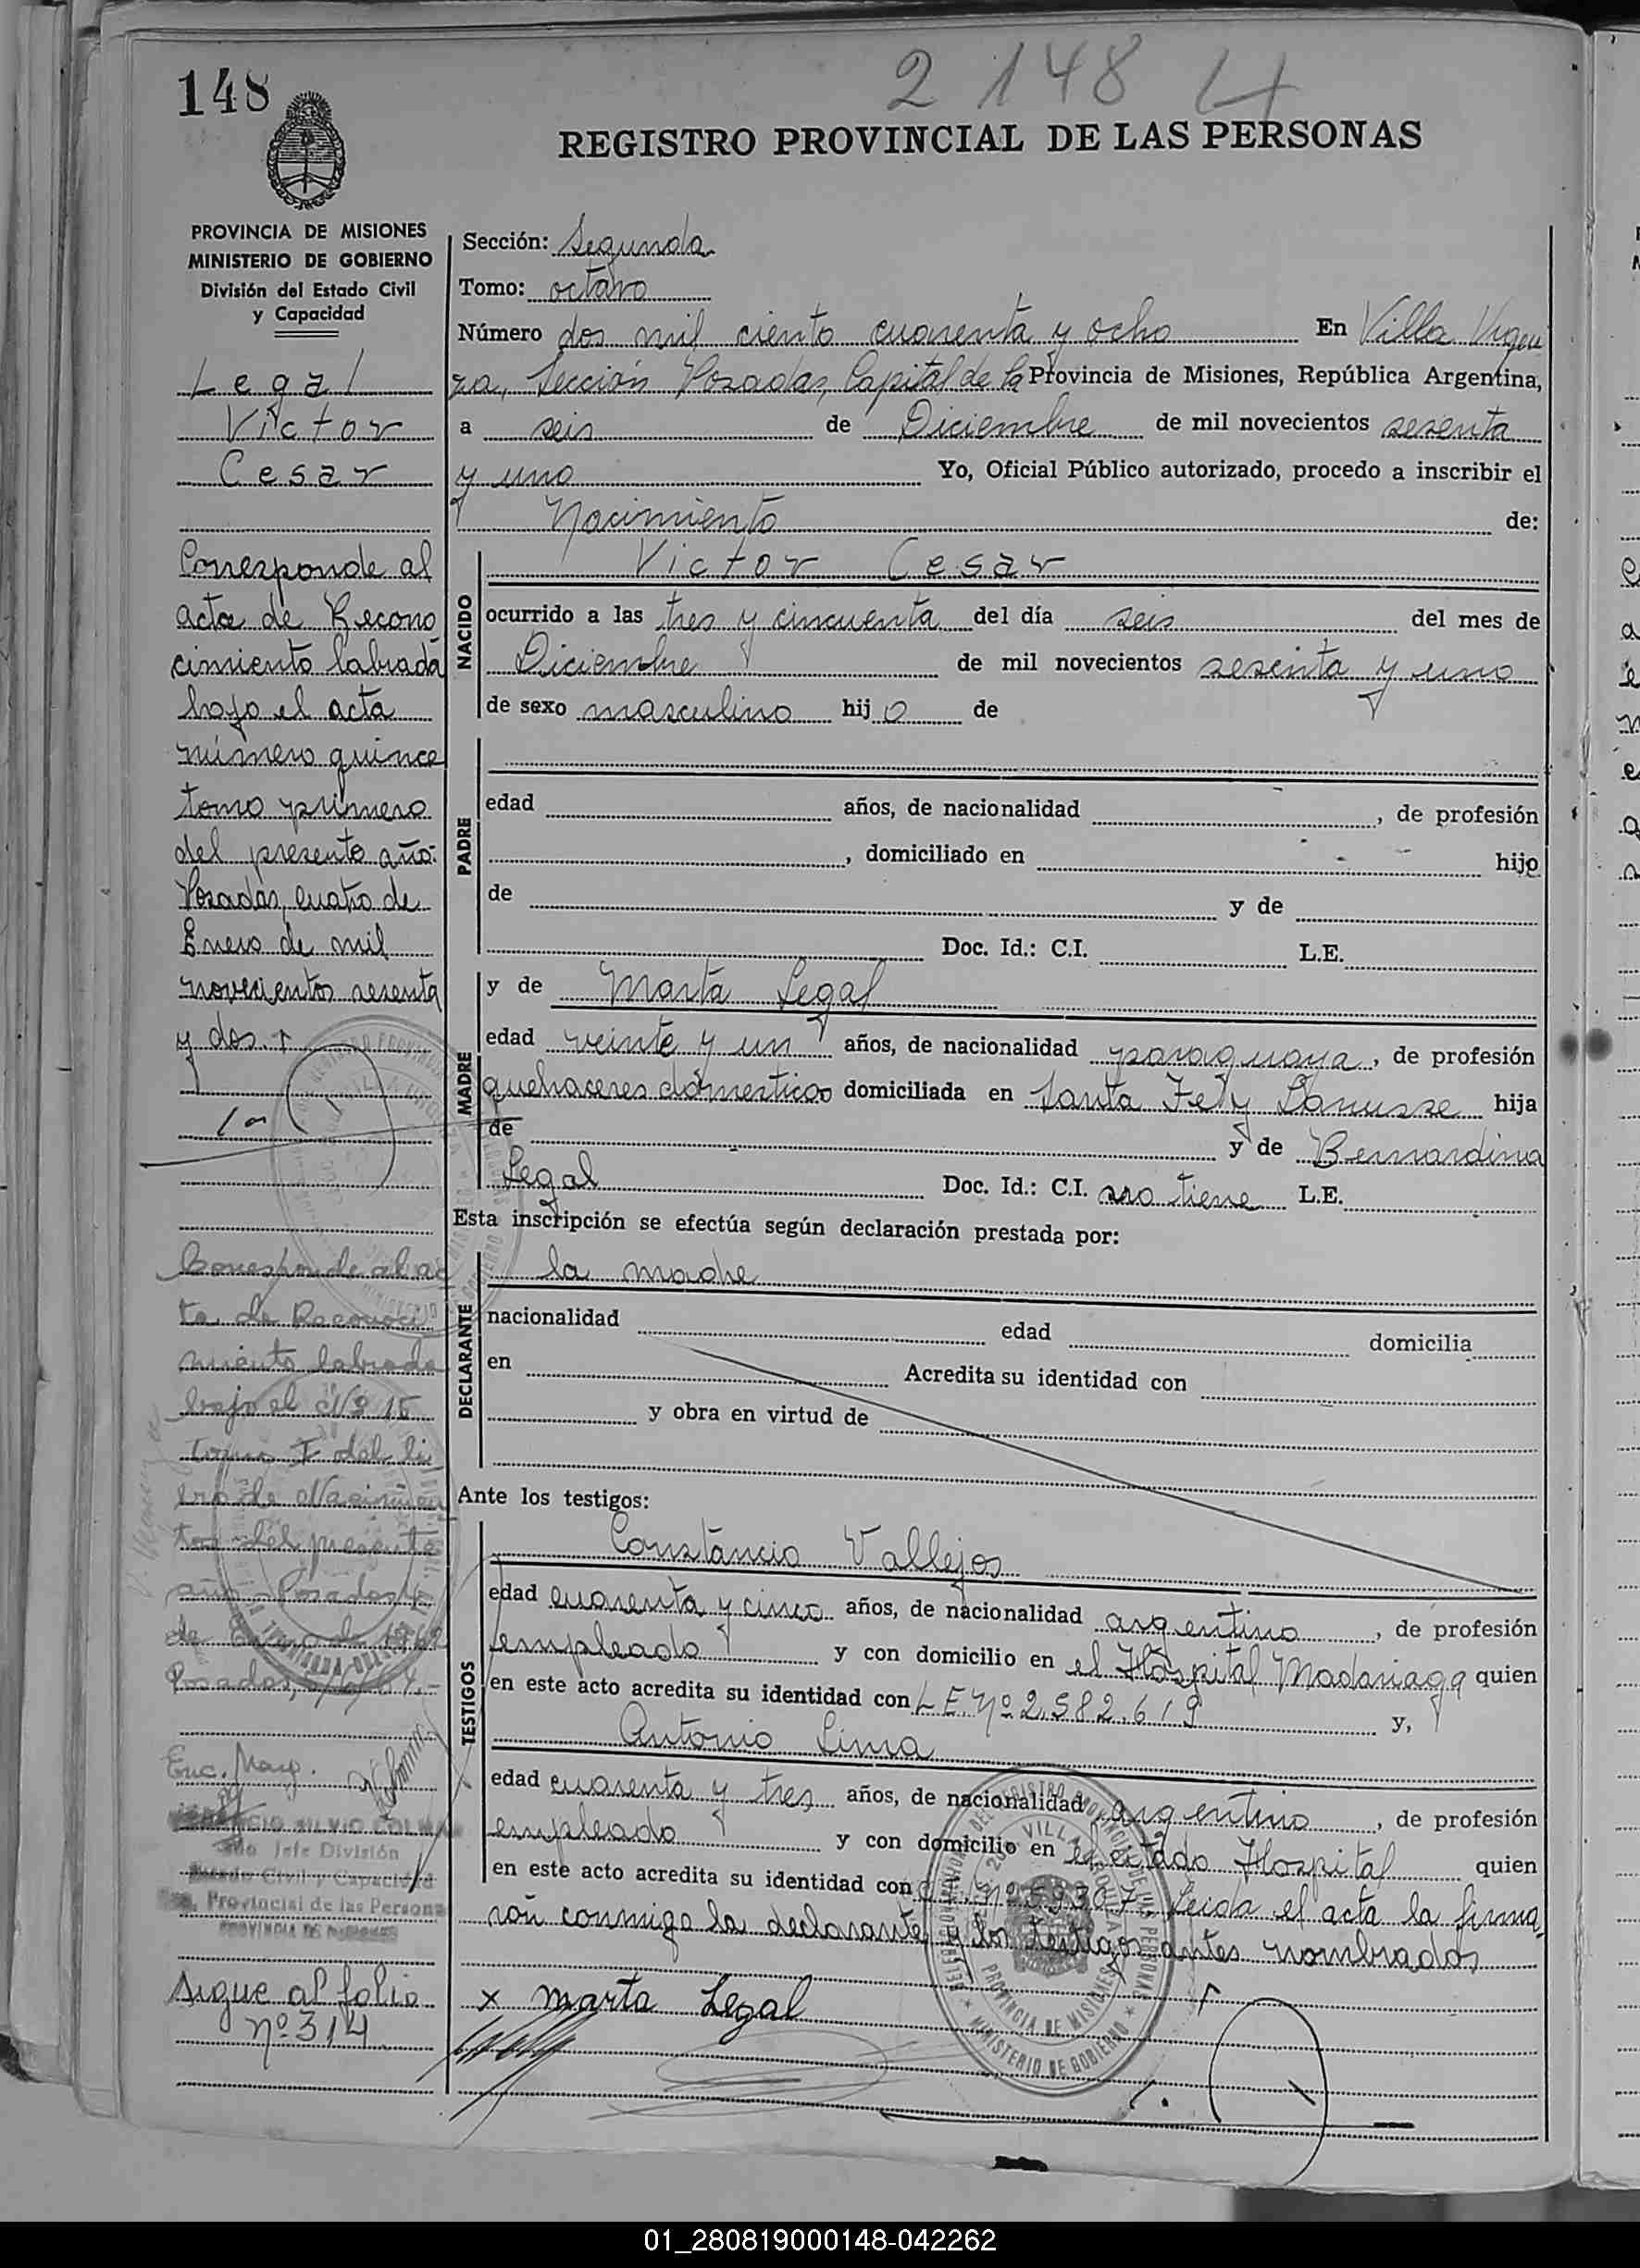 148
2 148 4
REGISTRO PROVINCIAL DE LAS PERSONAS
PROVINCIA DE MISIONES
MINISTERIO DE GOBIERNO
División del Estado Civil
y Capacidad
Legal
Victor
Cesar
Corresponde al
acta de Recono
cimiento labrada
bajo el acta
número quince
tomo primero
del presente año.
Posadas, cuatro de
Enero de mil
novecientos sesenta
y dos.
Corresponde al ac
ta de Reconoci
miento labrada
bajo el Nº 15
Tomo I del li
bro de Nacimien
tos del presente
año. Posadas, 4
de Enero de 1962
Posadas,
Enc. Marg.
SILVIO COLMAN
Jefe División
Estado Civil y Capacidad
Provincial de las Personas
PROVINCIA DE MISIONES
Sigue al folio
nº 314
Sección: Segunda
Tomo: octavo
Número dos mil ciento cuarenta y ocho En Villa Urqui
za, Sección Posadas, Capital de la Provincia de Misiones, República Argentina,
a seis de Diciembre de mil novecientos sesenta
y uno Yo, Oficial Público autorizado, procedo a inscribir el
Nacimiento de:
NACIDO
Victor Cesar
ocurrido a las tres y cincuenta del día seis del mes de
Diciembre de mil novecientos sesenta y uno
de sexo masculino hijo de
PADRE
edad años, de nacionalidad , de profesión
, domiciliado en hijo
de y de
Doc. Id.: C.I. L.E.
MADRE
y de Marta Legal
edad veinte y un años, de nacionalidad paraguaya, de profesión
quehaceres domesticos domiciliada en Santa Fe y Lanusse hija
de y de Bernardina
Legal Doc. Id.: C.I. no tiene L.E.
Esta inscripción se efectúa según declaración prestada por:
DECLARANTE
la madre
nacionalidad edad domicilia
en Acredita su identidad con
y obra en virtud de
Ante los testigos:
TESTIGOS
Constancio Vallejos
edad cuarenta y cinco años, de nacionalidad argentino, de profesión
empleado y con domicilio en el Hospital Madariaga quien
en este acto acredita su identidad con L E. Nº 2.582.619 y,
Antonio Lima
edad cuarenta y tres años, de nacionalidad argentino, de profesión
empleado y con domicilio en el citado Hospital quien
en este acto acredita su identidad con Nº 59307. Leida el acta la firma
rón conmigo la declarante y los testigos antes nombrados
x Marta Legal
01_280819000148-042262